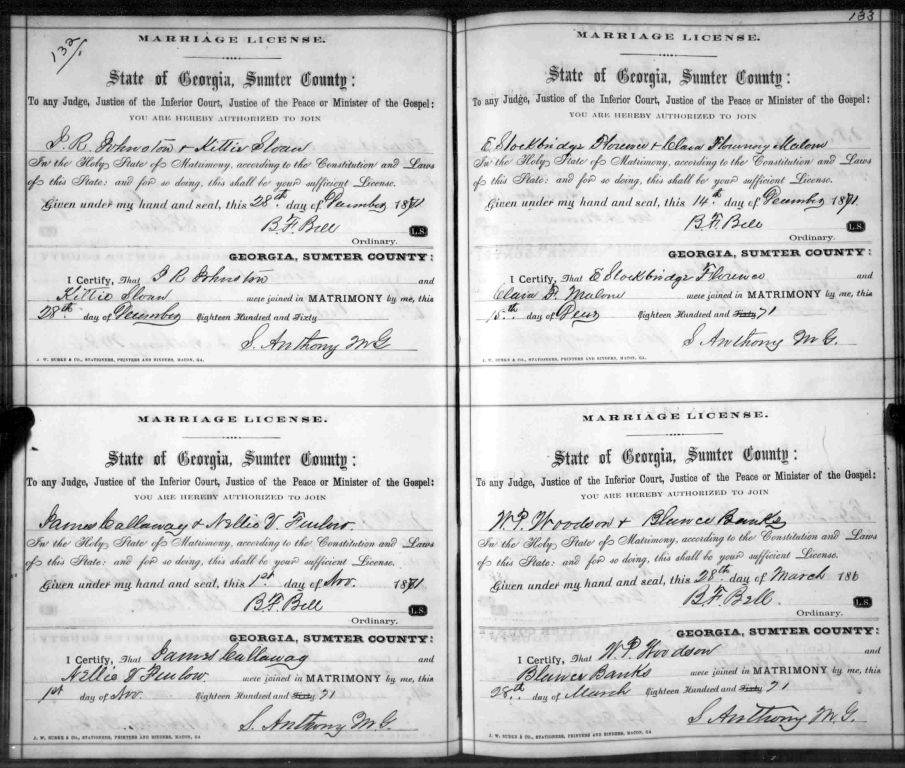 132/
MARRIAGE LICENSE.
State of Georgia, Sumter County:
To any Judge, Justice of the Inferior Court, Justice of the Peace or Minister of the Gospel:
YOU ARE HEREBY AUTHORIZED TO JOIN
J. R. Johnston & Kittie Sloan
In the Holy State of Matrimony, according to the Constitution and Laws
of this State: and for so doing, this shall be your sufficient License.
Given under my hand and seal, this 28th day of December 1871
B. F. Bell L.S.
Ordinary.
GEORGIA, SUMTER COUNTY:
I Certify, That J R Johnston and
Kittie Sloan were joined in MATRIMONY by me, this
28th day of December Eighteen Hundred and Sixty
S. Anthony M G
J. W. BURKE & CO., STATIONERS, PRINTERS AND BINDERS, MACON, GA.
MARRIAGE LICENSE.
State of Georgia, Sumter County:
To any Judge, Justice of the Inferior Court, Justice of the Peace or Minister of the Gospel:
YOU ARE HEREBY AUTHORIZED TO JOIN
James Callaway & Nellie V. Furlow.
In the Holy State of Matrimony, according to the Constitution and Laws
of this State: and for so doing, this shall be your sufficient License.
Given under my hand and seal, this 1st day of Nov. 1871
B. F. Bell L.S.
Ordinary.
GEORGIA, SUMTER COUNTY:
I Certify, That James Callaway and
Nellie V Furlow were joined in MATRIMONY by me, this
1st day of Nov. Eighteen Hundred and Sixty 71
S. Anthony M. G.
J. W. BURKE & CO., STATIONERS, PRINTERS AND BINDERS, MACON, GA
133
MARRIAGE LICENSE.
State of Georgia, Sumter County:
To any Judge, Justice of the Inferior Court, Justice of the Peace or Minister of the Gospel:
YOU ARE HEREBY AUTHORIZED TO JOIN
E Stockbridge Florence & Clara Malone
In the Holy State of Matrimony, according to the Constitution and Laws
of this State: and for so doing, this shall be your sufficient License.
Given under my hand and seal, this 14th day of December 1871.
B. F. Bell L.S.
Ordinary.
GEORGIA, SUMTER COUNTY:
I Certify, That E Stockbridge Florence and
Clara F. Malone were joined in MATRIMONY by me, this
15th day of Eighteen Hundred and Sixty 71
S Anthony M. G.
J. W. BURKE & CO., STATIONERS, PRINTERS AND BINDERS, MACON, GA.
MARRIAGE LICENSE.
State of Georgia, Sumter County:
To any Judge, Justice of the Inferior Court, Justice of the Peace or Minister of the Gospel:
YOU ARE HEREBY AUTHORIZED TO JOIN
W. P. Woodson & Blance Banks
In the Holy State of Matrimony, according to the Constitution and Laws
of this State: and for so doing, this shall be your sufficient License.
Given under my hand and seal, this 28th day of March 186
B. F. Bell. L.S.
Ordinary.
GEORGIA, SUMTER COUNTY:
I Certify, That W. P. Woodson and
Blance Banks were joined in MATRIMONY by me, this
28th day of March Eighteen Hundred and Sixty 71
S. Anthony M. G.
J. W. BURKE & CO., STATIONERS, PRINTERS AND BINDERS, MACON, GA